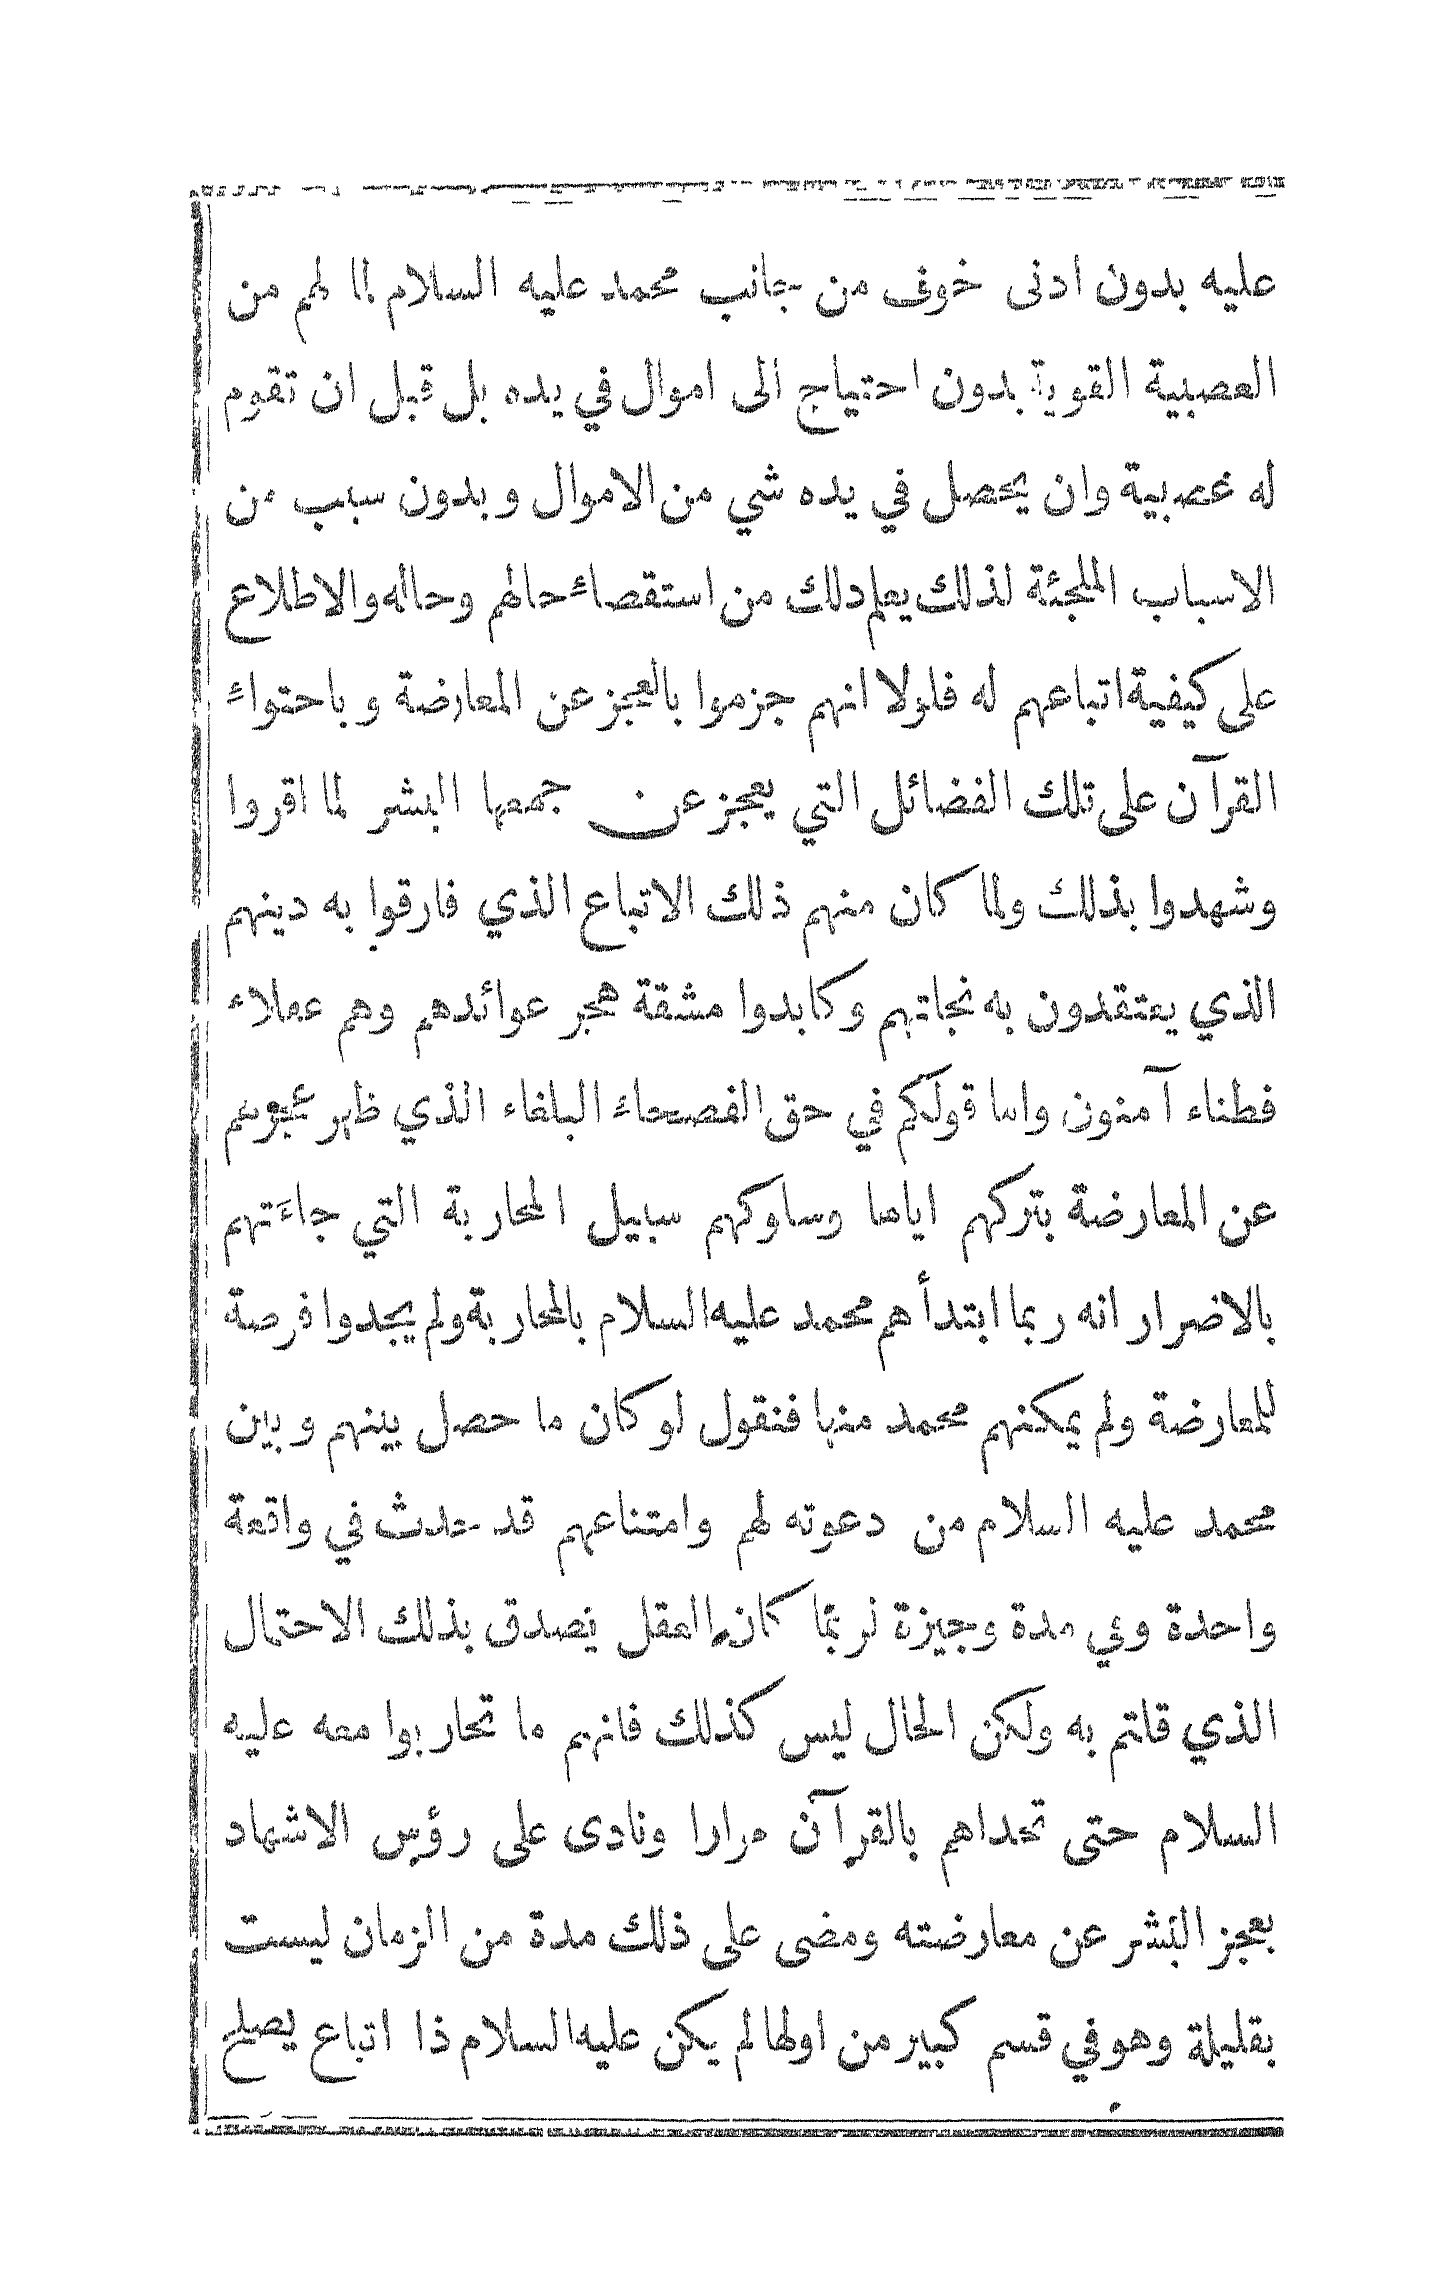 عليه بدون أدنى خوف من جانب محمد عليه السلام لما لهم من
العصبية القوية بدون احتياج الى اموال في يده بل قبل ان تقوم
له عصبية وان يحصل في يده شي من الاموال وبدون سبب من
الاسباب الملجئة لذلك يعلم ذلك من استقصاء حالهم وحاله والاطلاع
على كيفية اتباعهم له فلولا انهم جزموا بالعجز عن المعارضة وباحتواء
القرآن على تلك الفضائل التي يعجز عن جمعها البشر لما اقروا
وشهدوا بذلك ولما كان منهم ذلك الاتباع الذي فارقوا به دينهم
الذي يعتقدون به نجاتهم وكابدوا مشقة هجر عوائدهم وهم عقلاء
فطناء آمنون واما قولكم في حق الفصحاء البلغاء الذي ظهر عجزهم
عن المعارضة بتركهم اياها وسلوكهم سبيل المحاربة التي جاءتهم
بالاضرار انه ربما ابتدأهم محمد عليه السلام بالمحاربة ولم يجدوا فرصة
للمعارضة ولم يمكنهم محمد منها فنقول لو كان ما حصل بينهم وبين
محمد عليه السلام من دعوته لهم وامتناعهم قد حدث في واقعة
واحدة وفي مدة وجيزة لربما كان العقل يصدق بذلك الاحتمال
الذي قلتم به ولكن الحال ليس كذلك فانهم ما تحاربوا معه عليه
السلام حتى تحداهم بالقرآن مرارا ونادى على رؤس الاشهاد
بعجز البشر عن معارضته ومضى على ذلك مدة من الزمان ليست
بقليلة وهو في قسم كبير من اولها لم يكن عليه السلام ذا اتباع يصلح